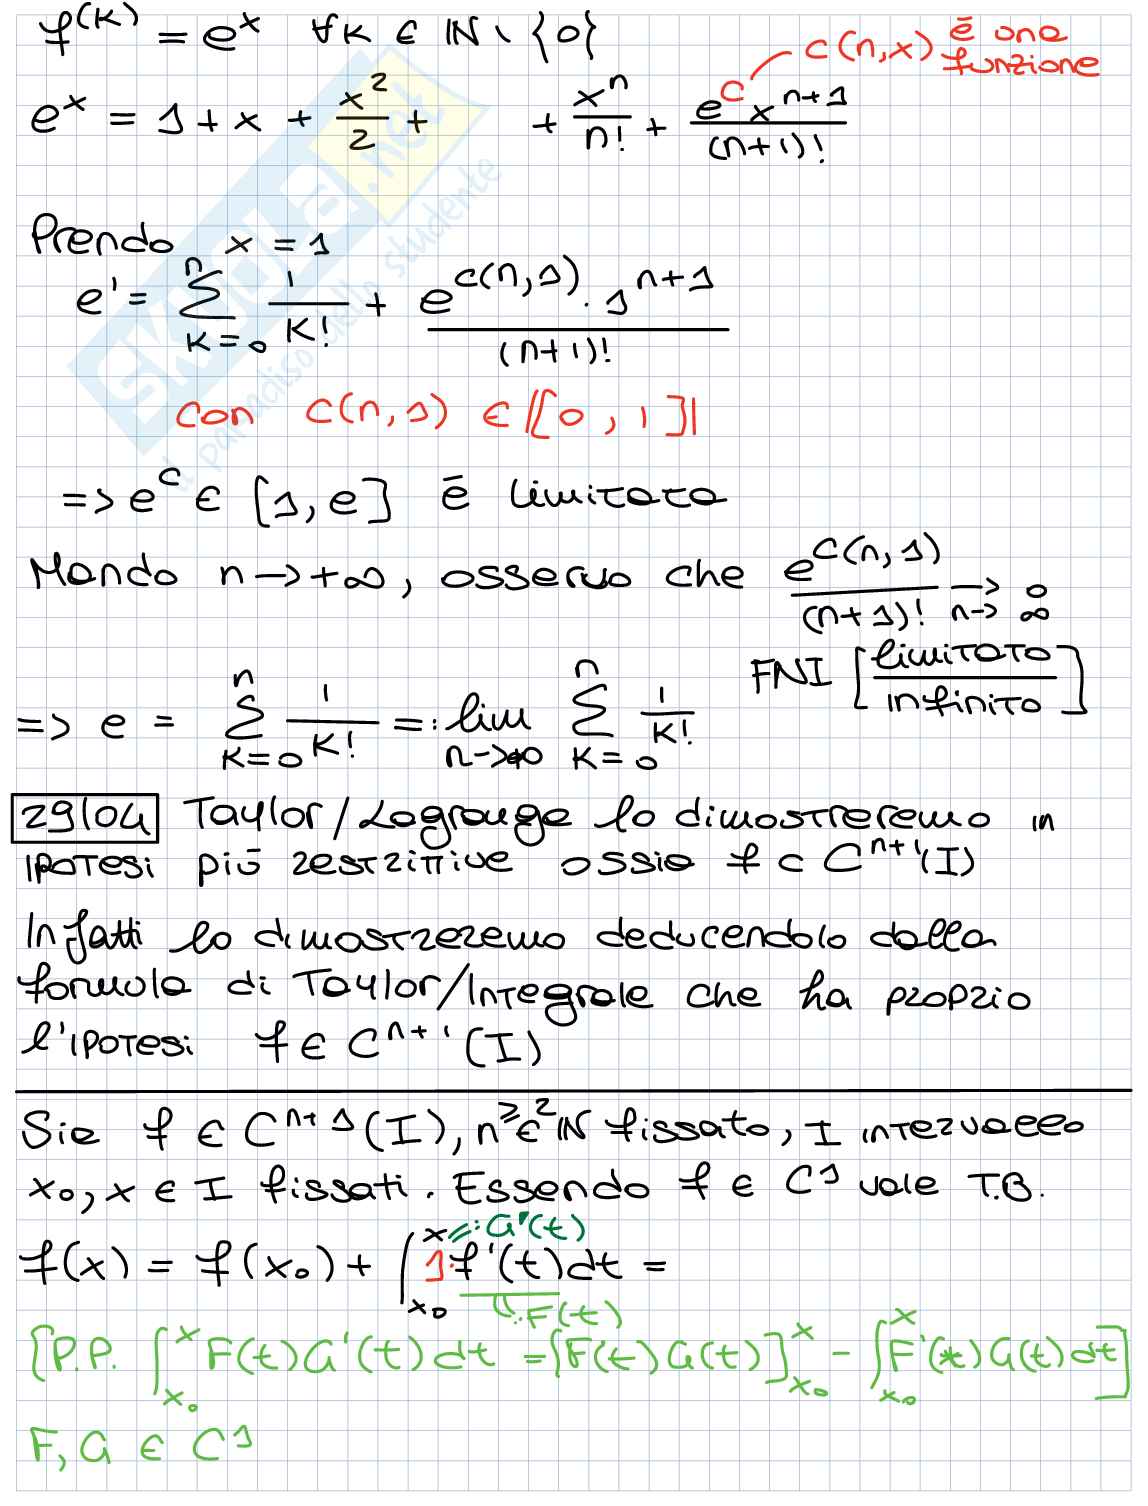 f^(K) = e^x ∀K ∈ IN \ {0}
c(n,x) è una funzione
e^x = 1 + x + x^2/2 + + x^n/n! + e^c x^(n+1)/(n+1)!
Prendo x = 1
e^1 = Σ_(K=0)^n 1/K! + e^(c(n,1)) · 1^(n+1)/(n+1)!
con c(n,1) ∈ |[0,1]|
=> e^c ∈ [1,e] è limitata
Mando n → +∞, osservo che e^(c(n,1))/(n+1)! →_(n→∞) 0
FNI [limitato/infinito]
=> e = Σ_(K=0)^n 1/K! =: lim_(n→+∞) Σ_(K=0)^n 1/K!
29/04 Taylor/Lagrange lo dimostreremo in
ipotesi più restrittive ossia f ⊂ C^(n+1)(I)
Infatti lo dimostreremo deducendolo dalla
formula di Taylor/Integrale che ha proprio
l'ipotesi f ∈ C^(n+1)(I)
Sia f ∈ C^(n+1)(I), n ∈ IN ≥ 2 fissato, I intervallo
x₀, x ∈ I fissati. Essendo f ∈ C^1 vale T.B.
=: G'(t)
f(x) = f(x₀) + ∫_(x₀)^x 1·f'(t)dt =
=: F(t)
[P.P. ∫_(x₀)^x F(t)G'(t)dt = [F(t)G(t)]_(x₀)^x - ∫_(x₀)^x F'(t)G(t)dt]
F, G ∈ C^1
SKUOLA.net
il paradiso dello studente